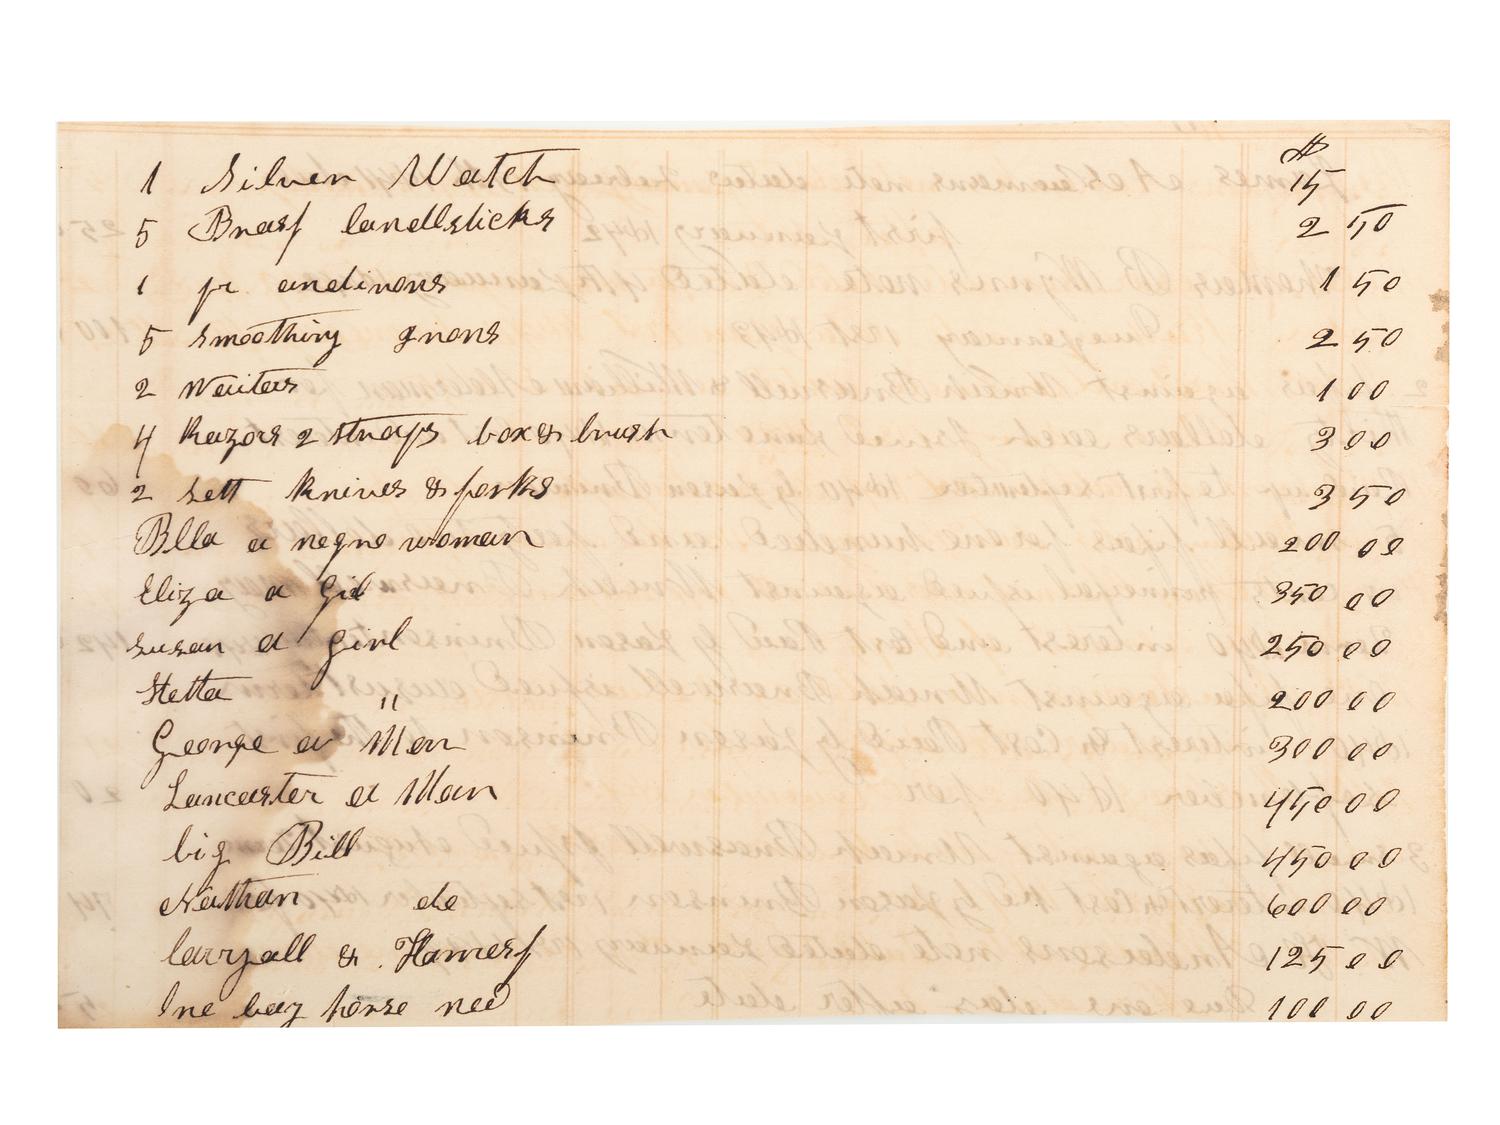 $
1 Silver Watch 15
5 Brass Candlsticks 2 50
1 pr andirons 1 50
5 smoothing irons 2 50
2 Waiters 1 00
4 Razors 2 straps box & brush 3 00
2 sett knives & forks 3 50
Blla a negro woman 200 00
Eliza a Girl 350 00
Susan a Girl 250 00
Hetta " 200 00
George a Man 300 00
Lancaster a Man 450 00
big Bill 450 00
Nathan do 600 00
Carryall & Harness 125 00
One bay horse ned 100 00